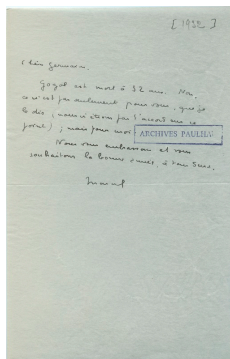 [1952]
Chère Germaine.
Gogol est mort à 42 ans. Non,
ce n'est pas seulement pour vous, que je
le dis, (nous n'étions pas d'accord sur ce
point) ; mais pour moi
ARCHIVES PAULHAN
Nous vous embrassons et vous
souhaitons la bonne année, à tous deux.